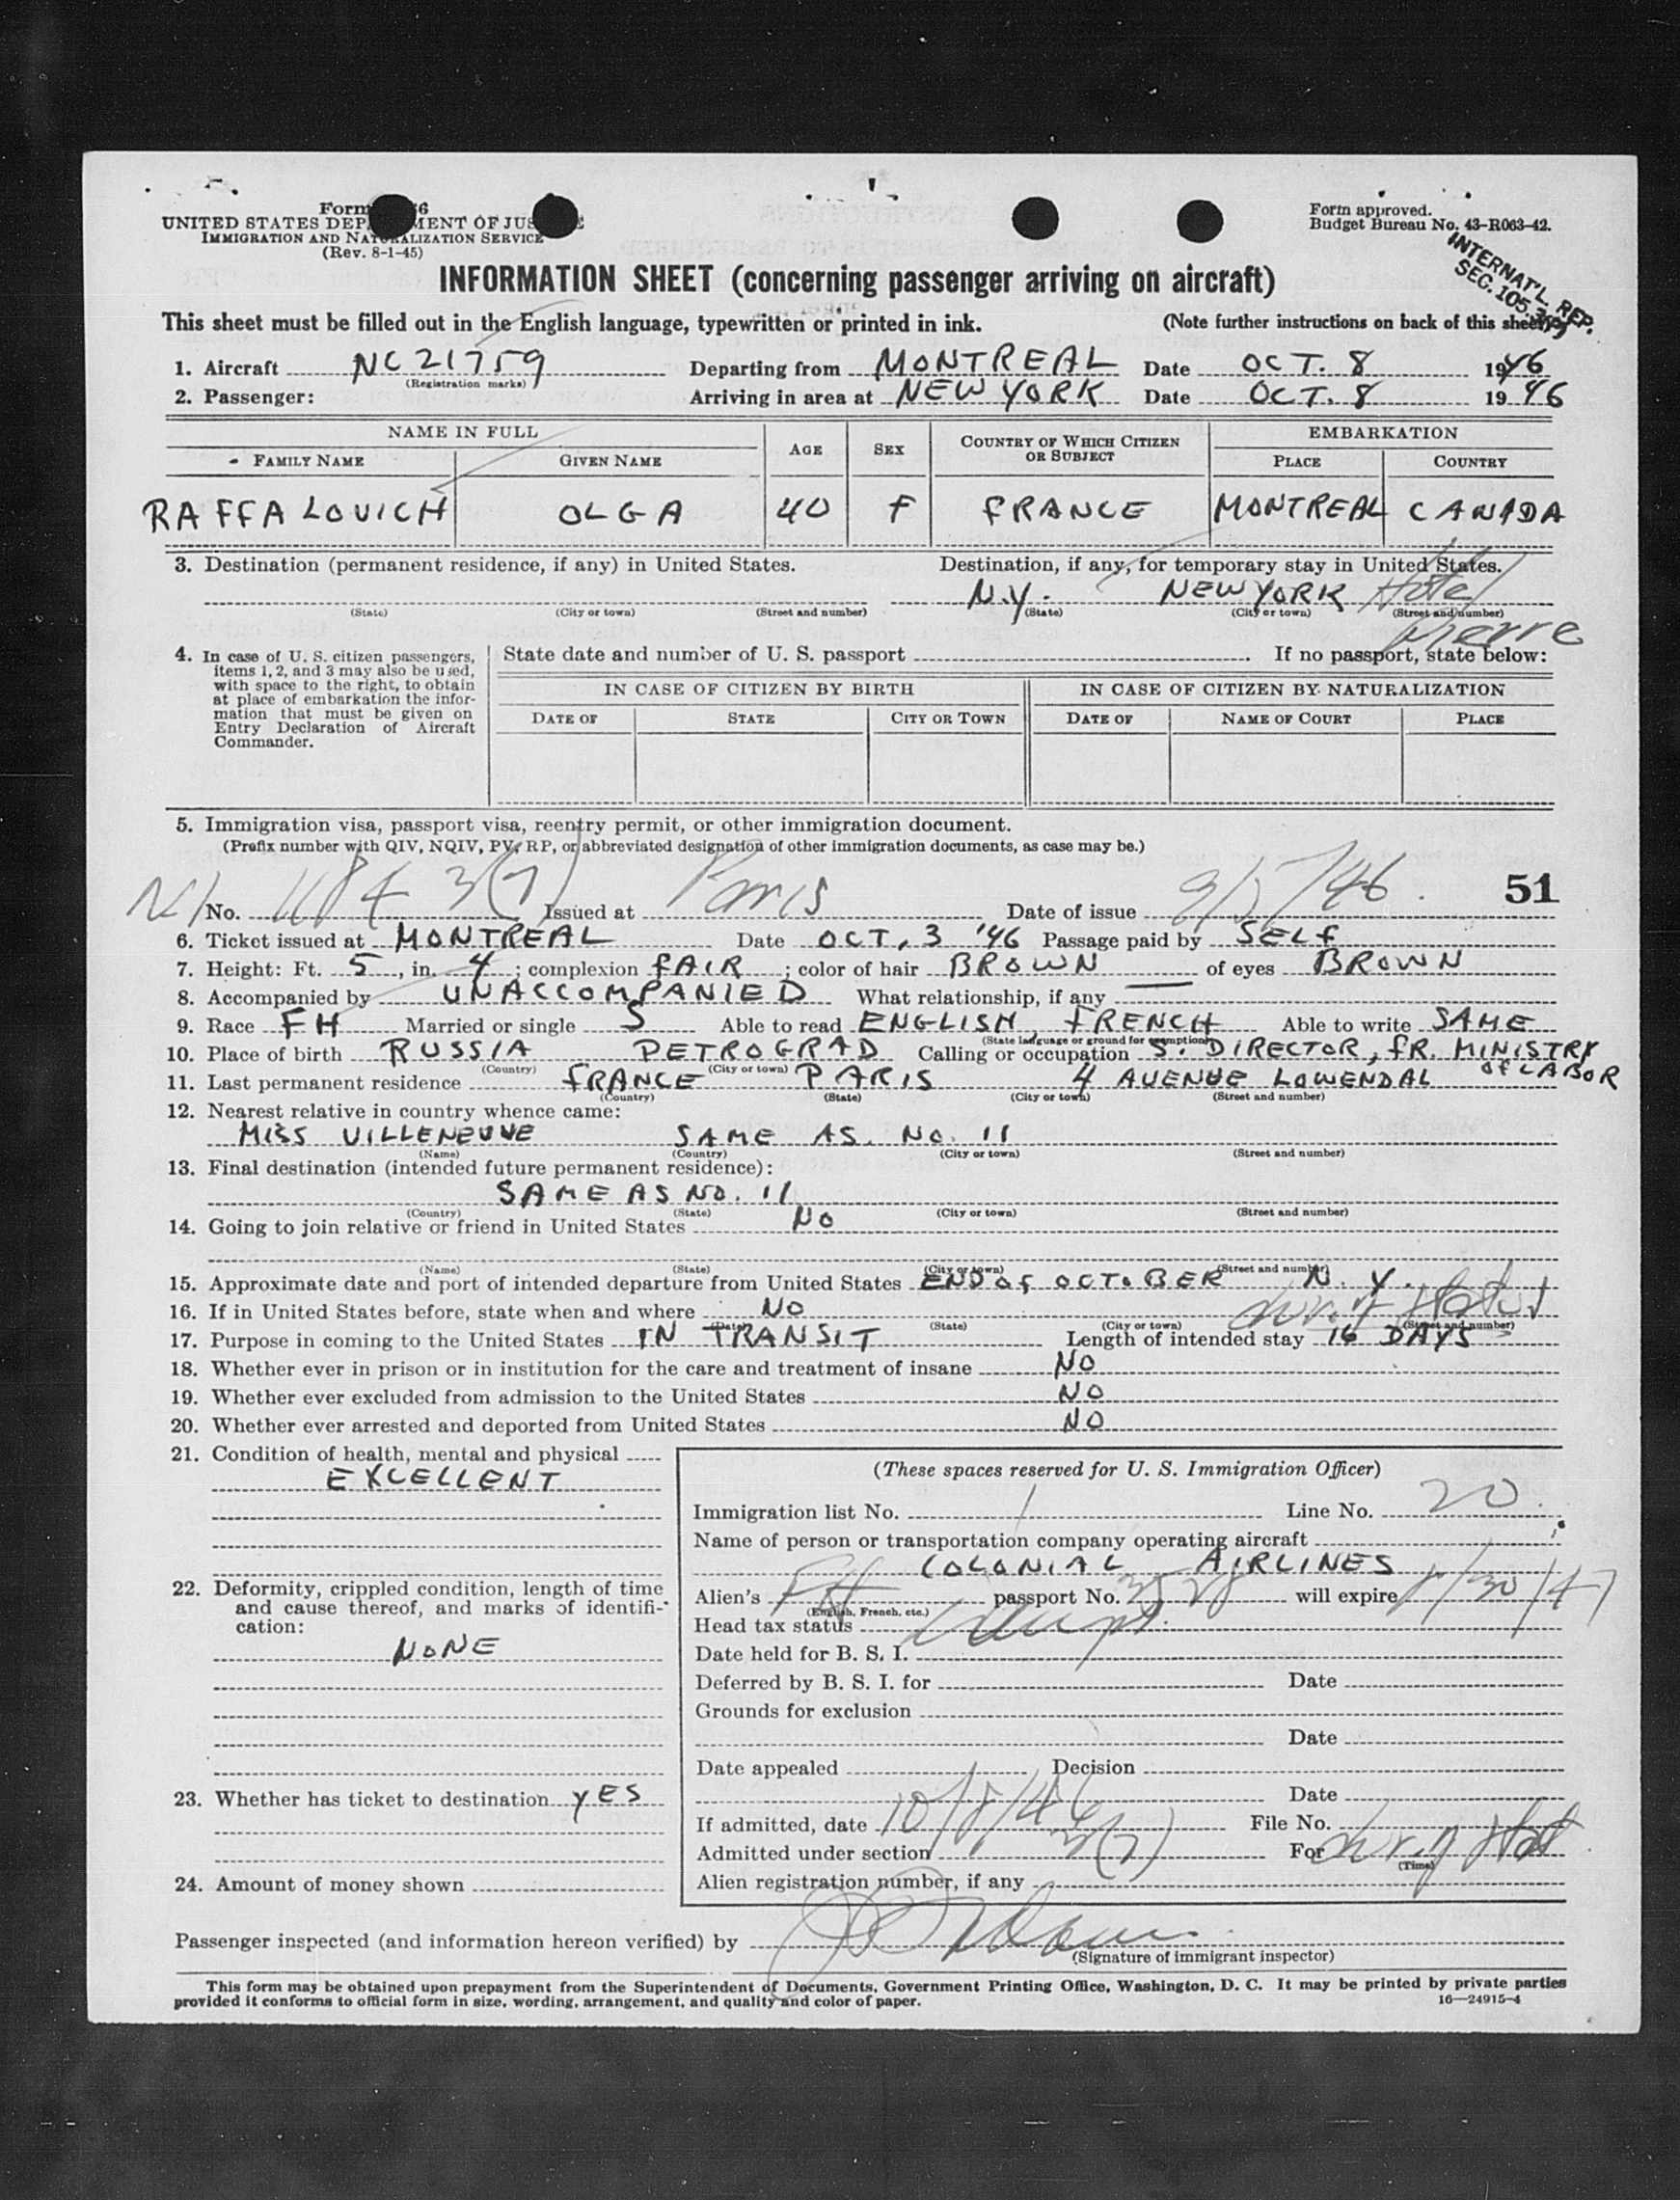 Form 6
UNITED STATES DEP MENT OF JUS E
IMMIGRATION AND NATURALIZATION SERVICE
(Rev. 8-1-45)
Form approved.
Budget Bureau No. 43-R063-42.
INTERNAT'L. REP.
SEC. 105.3(P)
INFORMATION SHEET (concerning passenger arriving on aircraft)
This sheet must be filled out in the English language, typewritten or printed in ink. (Note further instructions on back of this sheet)
1. Aircraft NC21759 Departing from MONTREAL Date OCT. 8 1946
(Registration marks)
2. Passenger: Arriving in area at NEW YORK Date OCT. 8 1946
NAME IN FULL AGE SEX COUNTRY OF WHICH CITIZEN OR SUBJECT EMBARKATION
FAMILY NAME GIVEN NAME PLACE COUNTRY
RAFFALOVICH OLGA 40 F FRANCE MONTREAL CANADA
3. Destination (permanent residence, if any) in United States. Destination, if any, for temporary stay in United States.
N.Y. NEW YORK Hotel
(State) (City or town) (Street and number) (State) (City or town) (Street and number)
Pierre
4. In case of U. S. citizen passengers, items 1, 2, and 3 may also be used, with space to the right, to obtain at place of embarkation the information that must be given on Entry Declaration of Aircraft Commander.
State date and number of U. S. passport . If no passport, state below:
IN CASE OF CITIZEN BY BIRTH IN CASE OF CITIZEN BY NATURALIZATION
DATE OF STATE CITY OR TOWN DATE OF NAME OF COURT PLACE
5. Immigration visa, passport visa, reentry permit, or other immigration document.
(Prefix number with QIV, NQIV, PV, RP, or abbreviated designation of other immigration documents, as case may be.)
No. 3(7) Issued at Paris Date of issue 51
6. Ticket issued at MONTREAL Date OCT. 3 '46 Passage paid by SELF
7. Height: Ft. 5, in. 4; complexion FAIR; color of hair BROWN of eyes BROWN
8. Accompanied by UNACCOMPANIED What relationship, if any —
9. Race FH Married or single S Able to read ENGLISH, FRENCH Able to write SAME
(State language or ground for exemption)
10. Place of birth RUSSIA PETROGRAD Calling or occupation S. DIRECTOR, FR. MINISTRY OF LABOR
(Country) (City or town)
11. Last permanent residence FRANCE PARIS 4 AVENUE LOWENDAL
(Country) (State) (City or town) (Street and number)
12. Nearest relative in country whence came:
MISS VILLENEUVE SAME AS. No. 11
(Name) (Country) (City or town) (Street and number)
13. Final destination (intended future permanent residence):
SAME AS NO. 11
(Country) (State) (City or town) (Street and number)
14. Going to join relative or friend in United States NO
(Name) (State) (City or town) (Street and number)
15. Approximate date and port of intended departure from United States END OF OCTOBER N.Y.
16. If in United States before, state when and where NO
(Date) (State) (City or town) (Street and number)
17. Purpose in coming to the United States IN TRANSIT Length of intended stay 16 DAYS
18. Whether ever in prison or in institution for the care and treatment of insane NO
19. Whether ever excluded from admission to the United States NO
20. Whether ever arrested and deported from United States NO
21. Condition of health, mental and physical
EXCELLENT
22. Deformity, crippled condition, length of time and cause thereof, and marks of identification:
NONE
23. Whether has ticket to destination YES
24. Amount of money shown
(These spaces reserved for U. S. Immigration Officer)
Immigration list No. 1 Line No. 20
Name of person or transportation company operating aircraft
COLONIAL AIRLINES
Alien's FH passport No. will expire
(English, French, etc.)
Head tax status
Date held for B. S. I.
Deferred by B. S. I. for Date
Grounds for exclusion
Date
Date appealed Decision
Date
If admitted, date 10/8/46 File No.
Admitted under section 3(7) For
(Time)
Alien registration number, if any
Passenger inspected (and information hereon verified) by
(Signature of immigrant inspector)
This form may be obtained upon prepayment from the Superintendent of Documents, Government Printing Office, Washington, D. C. It may be printed by private parties
provided it conforms to official form in size, wording, arrangement, and quality and color of paper. 16—24915-4